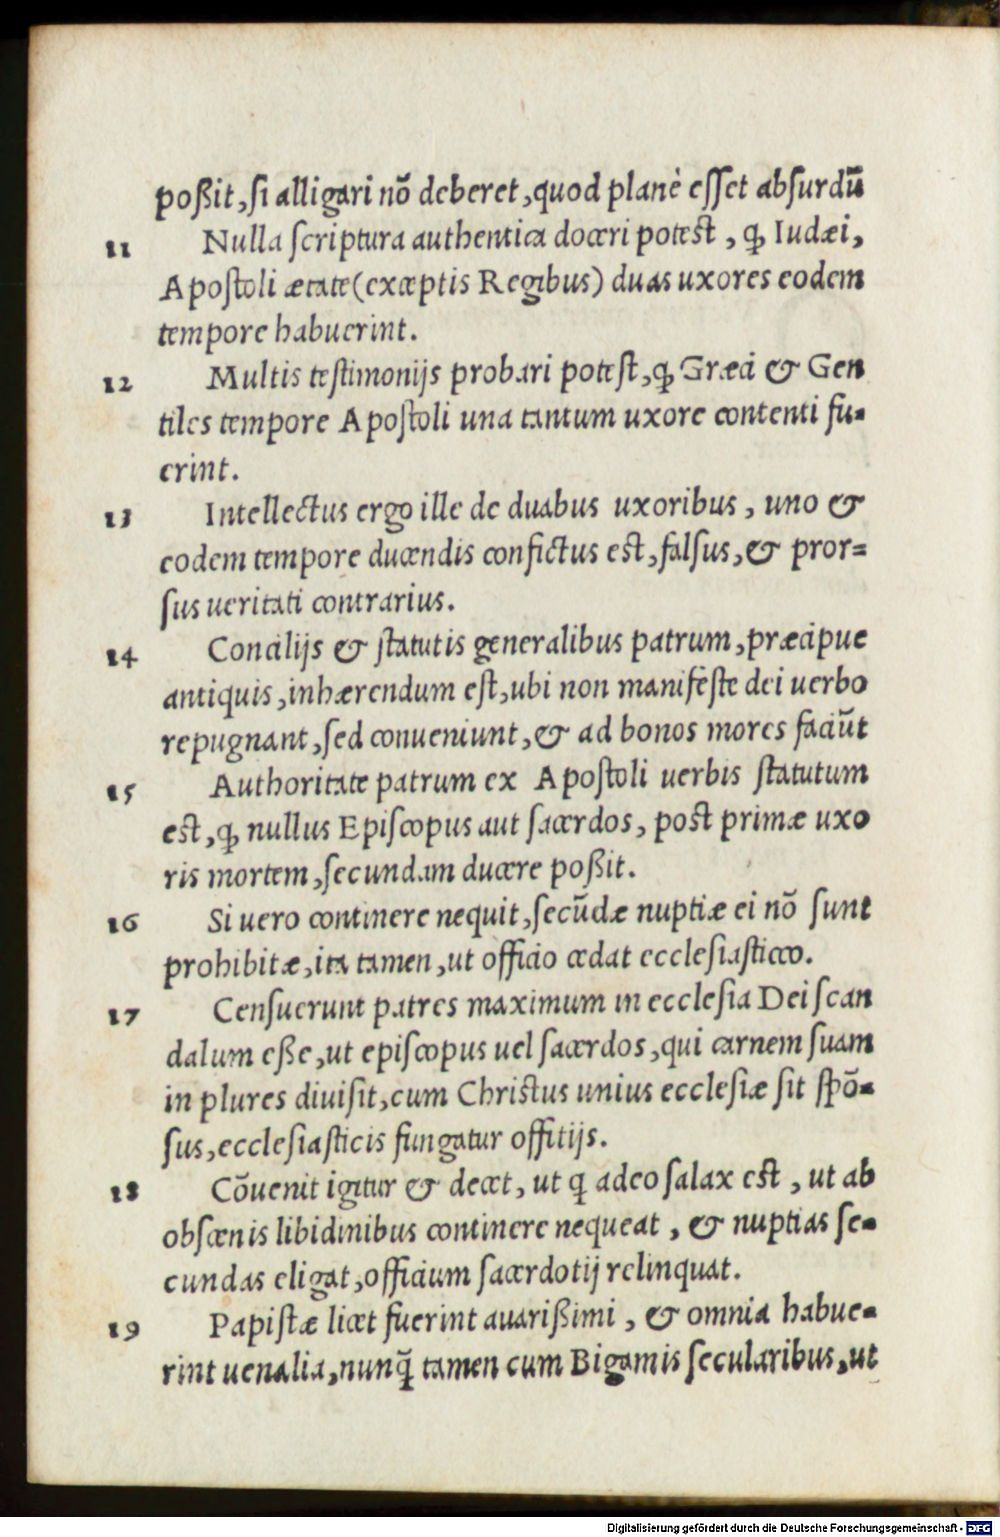 poßit, si alligari nõ deberet, quod planè esset absurdũ
11 Nulla scriptura authentica doceri potest, ꝙ Iudæi,
Apostoli ætate (exceptis Regibus) duas uxores eodem
tempore habuerint.
12 Multis testimonijs probari potest, ꝙ Græci & Gen
tiles tempore Apostoli una tantum uxore contenti fu-
erint.
13 Intellectus ergo ille de duabus uxoribus, uno &
eodem tempore ducendis confictus est, falsus, & pror=
sus ueritati contrarius.
14 Concilijs & statutis generalibus patrum, præcipue
antiquis, inhærendum est, ubi non manifeste dei uerbo
repugnant, sed conueniunt, & ad bonos mores faciũt
15 Authoritate patrum ex Apostoli uerbis statutum
est, ꝙ nullus Episcopus aut sacerdos, post primæ uxo
ris mortem, secundam ducere poßit.
16 Si uero continere nequit, secũdæ nuptiæ ei nõ sunt
prohibitæ, ita tamen, ut officio cedat ecclesiastico.
17 Censuerunt patres maximum in ecclesia Dei scan
dalum eße, ut episcopus uel sacerdos, qui carnem suam
in plures diuisit, cum Christus unius ecclesiæ sit spõ-
sus, ecclesiasticis fungatur offitijs.
18 Cõuenit igitur & decet, ut q̃ adeo salax est, ut ab
obscœnis libidinibus continere nequeat, & nuptias se-
cundas eligat, officium sacerdotij relinquat.
19 Papistæ licet fuerint auarißimi, & omnia habue-
rint uenalia, nunq̃ tamen cum Bigamis secularibus, ut
Digitalisierung gefördert durch die Deutsche Forschungsgemeinschaft - DFG